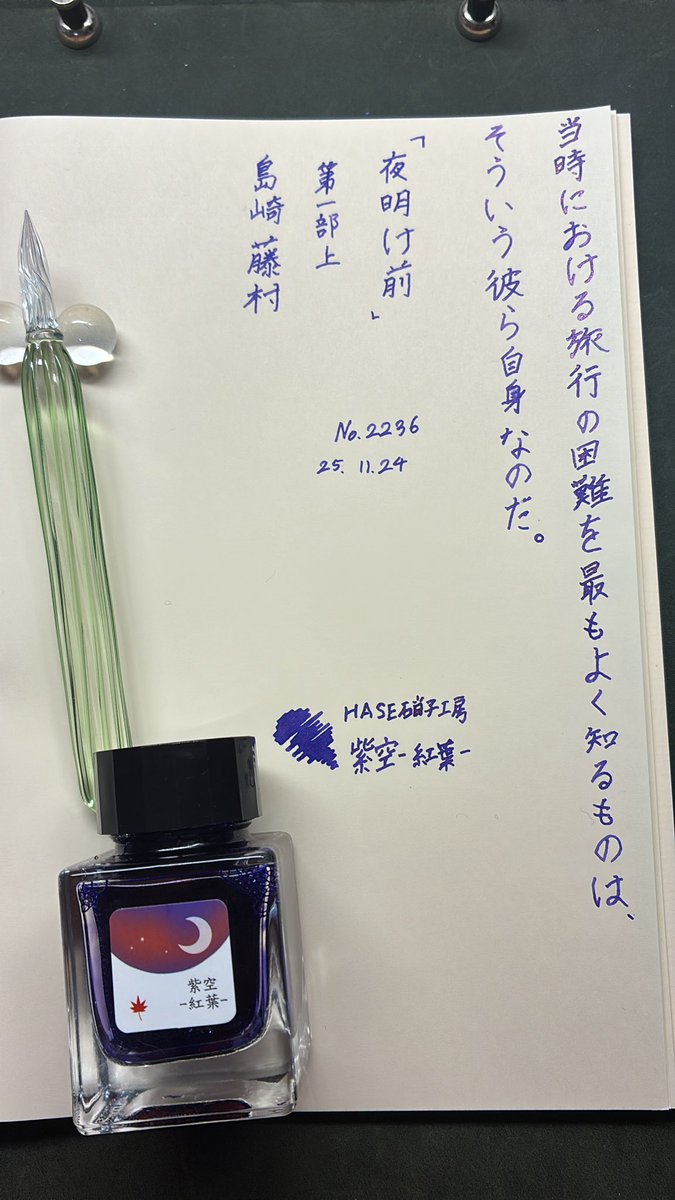 当時における旅行の困難を最もよく知るものは、
そういう彼ら自身なのだ。
「夜明け前」
第一部上
島崎藤村
No.2236
25.11.24
HASE硝子工房
紫空-紅葉-
紫空
-紅葉-